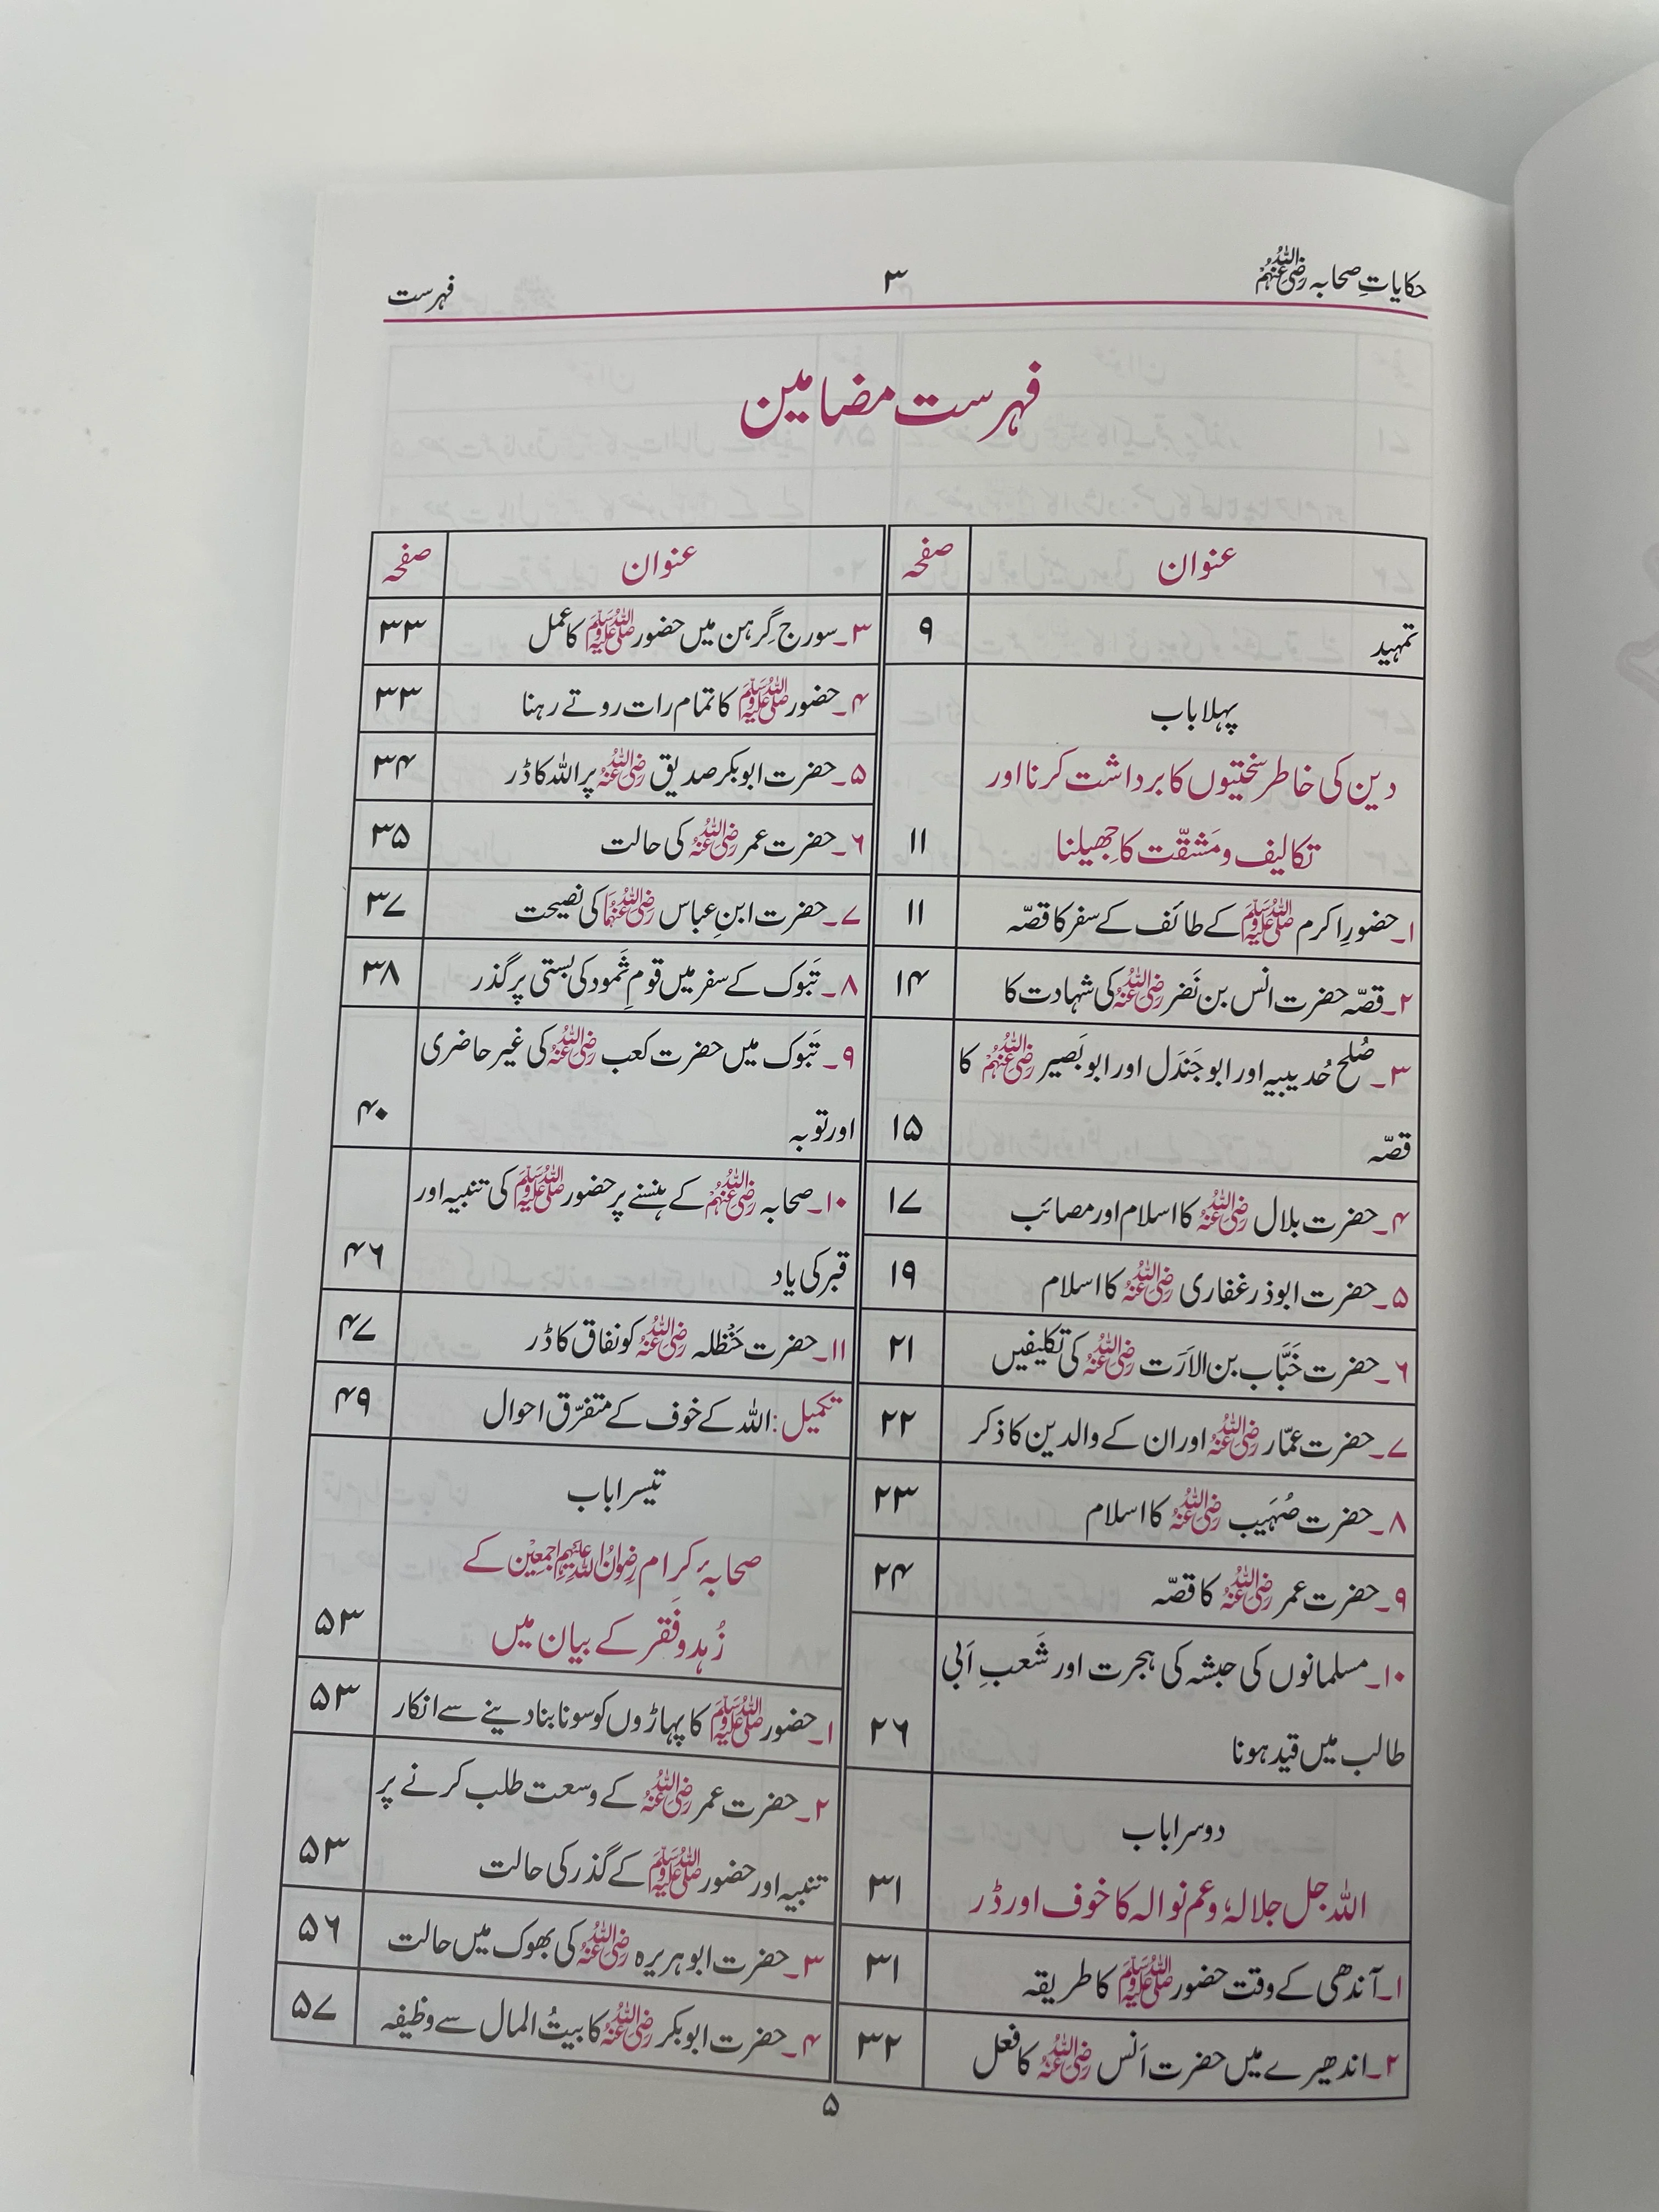 حکایاتِ صحابہ رضی اللہ عنہم
۳
فہرست
فہرست مضامین
عنوان صفحہ
تمہید ۹
پہلا باب
دین کی خاطر سختیوں کا برداشت کرنا اور
تکالیف و مَشقّت کا جھیلنا ۱۱
۱۔ حضورِ اکرم ﷺ کے طائف کے سفر کا قصّہ ۱۱
۲۔ قصّہ حضرت انس بن نَضر رضی اللہ عنہ کی شہادت کا ۱۴
۳۔ صُلح حُدیبیہ اور ابو جَندَل اور ابو بَصیر رضی اللہ عنہم کا
قصّہ ۱۵
۴۔ حضرت بلال رضی اللہ عنہ کا اسلام اور مصائب ۱۷
۵۔ حضرت ابوذر غفاری رضی اللہ عنہ کا اسلام ۱۹
۶۔ حضرت خَبَّاب بن الاَرَت رضی اللہ عنہ کی تکلیفیں ۲۱
۷۔ حضرت عمّار رضی اللہ عنہ اور ان کے والدین کا ذکر ۲۲
۸۔ حضرت صُہَیب رضی اللہ عنہ کا اسلام ۲۳
۹۔ حضرت عمر رضی اللہ عنہ کا قصّہ ۲۴
۱۰۔ مسلمانوں کی حبشہ کی ہجرت اور شَعبِ اَبی
طالب میں قید ہونا ۲۶
دوسرا باب
اللہ جل جلالہٗ وعم نوالہ کا خوف اور ڈر ۳۱
۱۔ آندھی کے وقت حضور ﷺ کا طریقہ ۳۱
۲۔ اندھیرے میں حضرت اَنس رضی اللہ عنہ کا فعل ۳۲
عنوان صفحہ
۳۔ سورج گِرہن میں حضور ﷺ کا عمل ۳۳
۴۔ حضور ﷺ کا تمام رات روتے رہنا ۳۳
۵۔ حضرت ابوبکر صدیق رضی اللہ عنہ پر اللہ کا ڈر ۳۴
۶۔ حضرت عمر رضی اللہ عنہ کی حالت ۳۵
۷۔ حضرت ابنِ عباس رضی اللہ عنہما کی نصیحت ۳۷
۸۔ تَبوک کے سفر میں قومِ ثَمود کی بستی پر گذر ۳۸
۹۔ تَبوک میں حضرت کعب رضی اللہ عنہ کی غیر حاضری
اور توبہ ۴۰
۱۰۔ صحابہ رضی اللہ عنہم کے ہنسنے پر حضور ﷺ کی تنبیہ اور
قبر کی یاد ۴۶
۱۱۔ حضرت حَنْظلہ رضی اللہ عنہ کو نفاق کا ڈر ۴۷
تکمیل: اللہ کے خوف کے متفرّق احوال ۴۹
تیسرا باب
صحابۂ کرام رضوان اللہ علیہم اجمعین کے
زُہد و فَقر کے بیان میں ۵۳
۱۔ حضور ﷺ کا پہاڑوں کو سونا بنا دینے سے انکار ۵۳
۲۔ حضرت عمر رضی اللہ عنہ کے وسعت طلب کرنے پر
تنبیہ اور حضور ﷺ کے گذر کی حالت ۵۳
۳۔ حضرت ابوہریرہ رضی اللہ عنہ کی بھوک میں حالت ۵۶
۴۔ حضرت ابوبکر رضی اللہ عنہ کا بیتُ المال سے وظیفہ ۵۷
۵